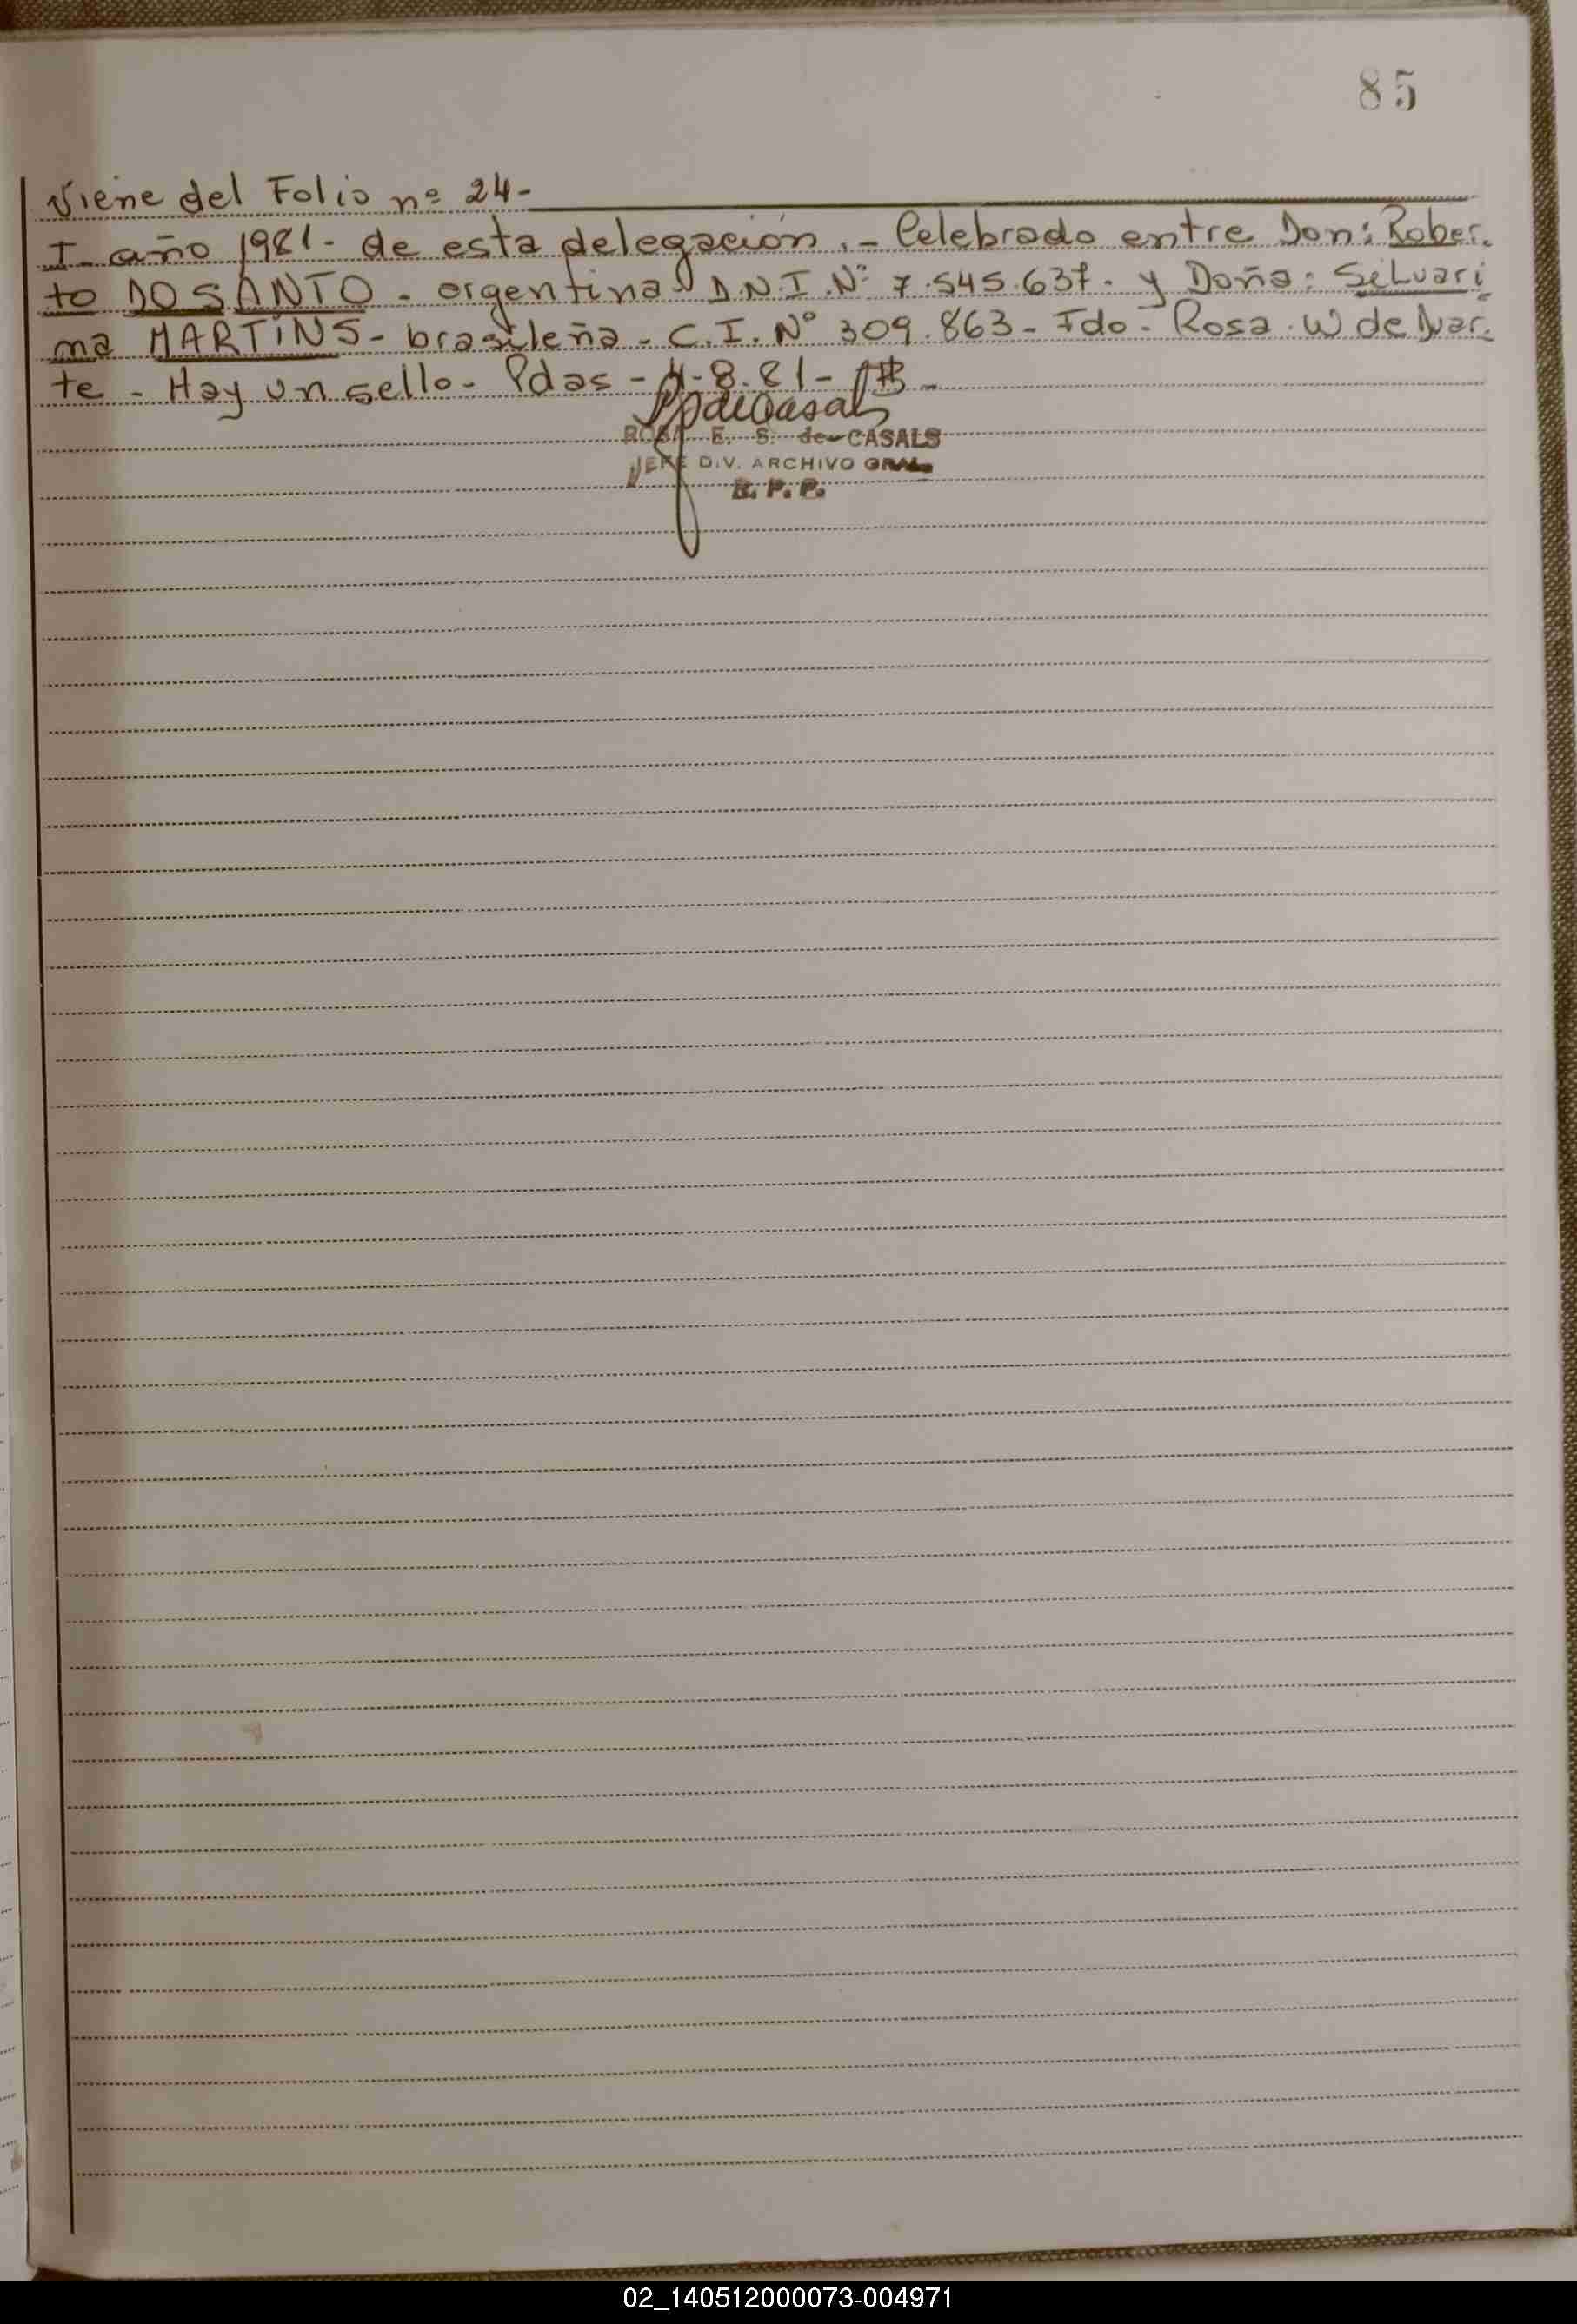 85
Viene del Folio nº 24-
I- año 1981- de esta delegación.- Celebrado entre Don: Rober-
to DOSANTO - argentina D.N.I. Nº 7.545.637- y Doña: SiLvari
na MARTiNS- brasileña - C.I. Nº 309.863- Fdo- Rosa. W de Duar-
te - Hay un sello- Pdas - 4-8-81-
ROSA E. S. de CASALS
JEFE DIV. ARCHIVO GRAL.
R. P. P.
02_140512000073-004971